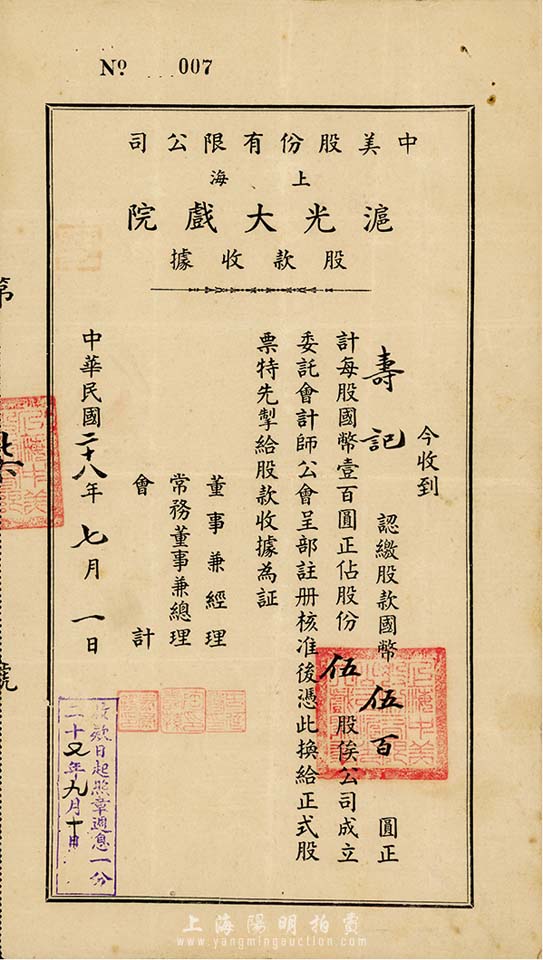 No 007
中美股份有限公司
上海
滬光大戲院
股款收據
今收到
壽記 認繳股款國幣伍百圓正
計每股國幣壹百圓正佔股份伍股俟公司成立
委託會計師公會呈部註册核准後憑此換給正式股
票特先掣給股款收據為証
董事兼經理
常務董事兼總理
會計
中華民國二十八年七月一日
款日起照章週息一分
二十又年九月十日
第
號
上海陽明拍賣
www.yangmingauction.com